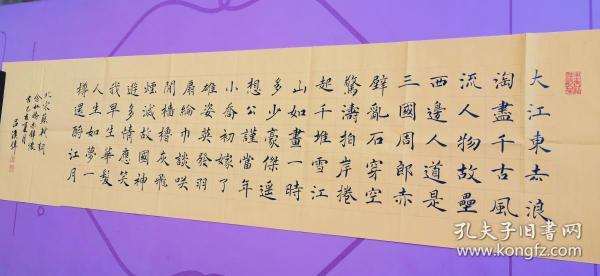 大江東去浪
淘盡千古風
流人物故壘
西邊人道是
三國周郎赤
壁亂石穿空
驚濤拍岸捲
起千堆雪江
山如畫一時
多少豪傑遙
想公謹當年
小喬初嫁了
雄姿英發羽
扇綸巾談笑
間檣櫓灰飛
煙滅故國神
遊多情應笑
我早生華髮
人生如夢一
樽還酹江月
北宋蘇軾詞
念奴嬌赤壁懷
古
孔夫子旧書网
www.kongfz.com